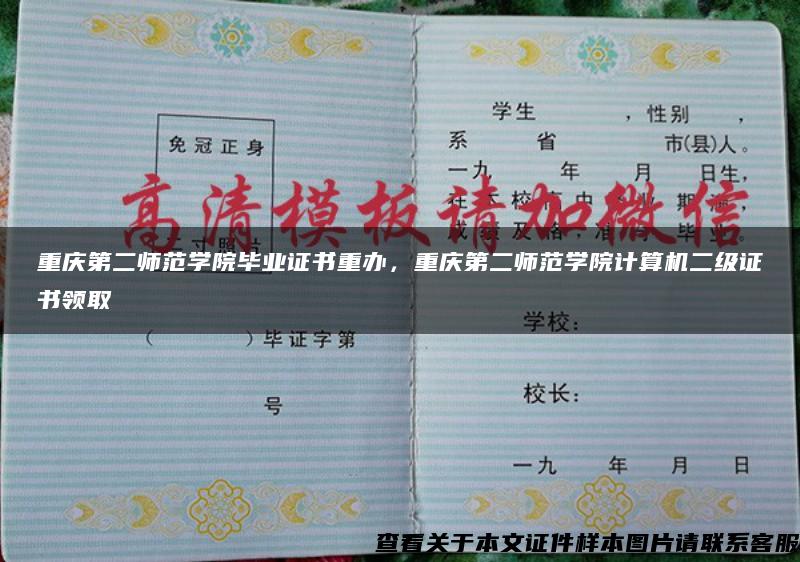 免冠正身
二寸照片
（ ）毕证字第
号
学生 ，性别 ，
系 省 市(县)人。
一九 年 月 日生，
在 校 中 业 期 ，
成绩及格，准 毕业。
高清模板请加微信
重庆第二师范学院毕业证书重办，重庆第二师范学院计算机二级证
书领取
学校：
校长：
一九 年 月 日
查看关于本文证件样本图片请联系客服